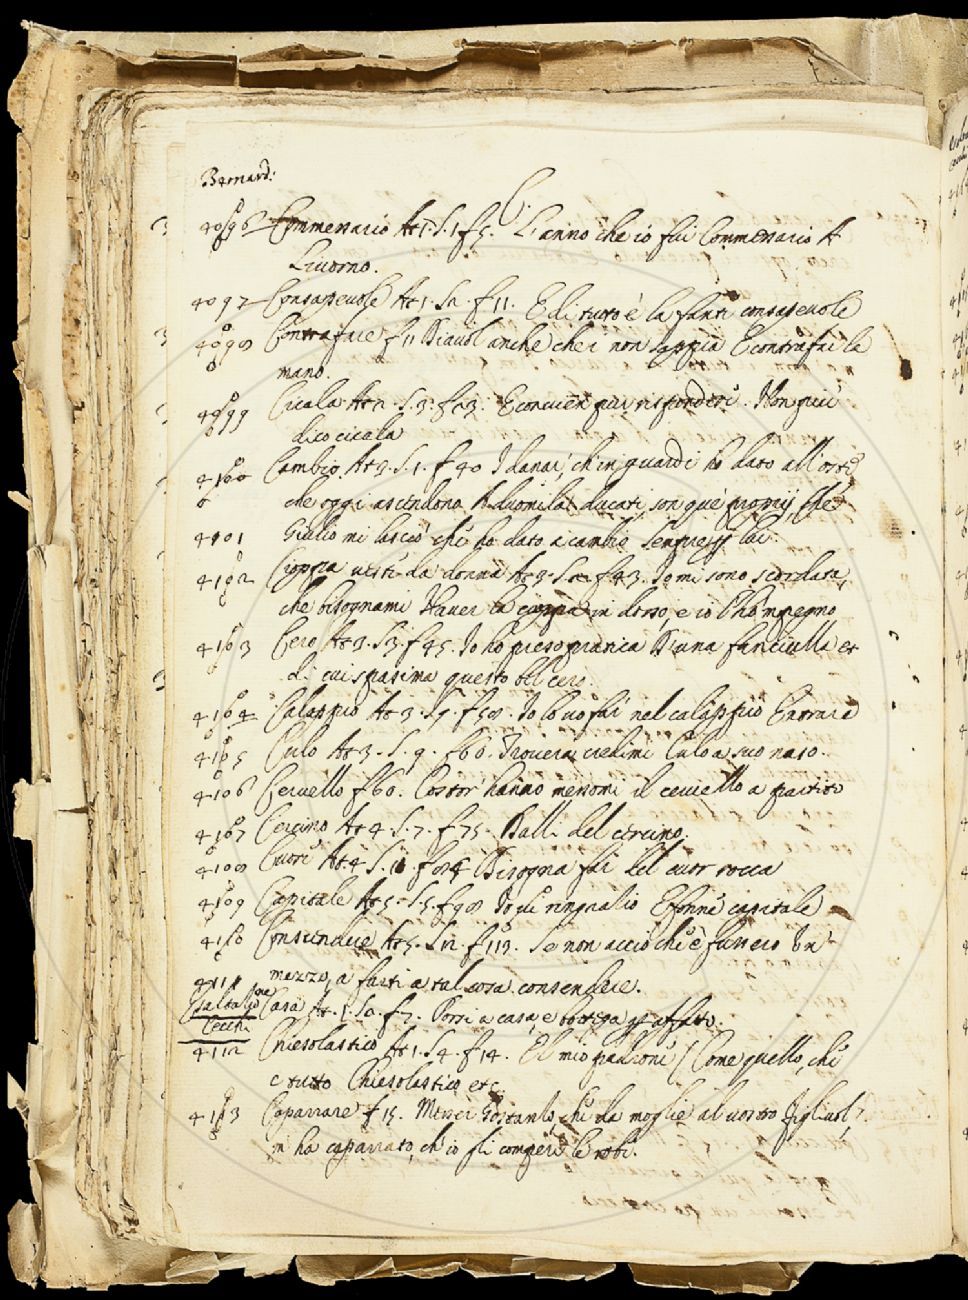 Bernard:
C.
4096 Commessario At. 1. S. 1. f. 5. L'anno che io fui Commessario A
Livorno.
4097 Consapevole At. 1. S. 2. f. 11. E di tutto è la fante consapevole
4098 Contrafare f. 11 Diavol anche che i non sappia Contrafar la
mano.
4099 Cicala At. 2. S. 3. f. 23. E convien pur risponderi. Non più
dico cicala
4100 Cambio At. 2. S. 1. f. 40 I danai, ch'in guardi ho dato all'oste
che oggi ascendono A duomila ducati son que proprij, che
4101 Giulio mi lasciò ch'i ho dato a cambio sempre p lui.
4102 Cioppa veste da donna At. 3. S. f. 43. Io mi sono scordata,
che bisognami Haver la cioppa in dosso, e io l'ho impegno
4103 Cero At. 3. S. 3. f. 45. Io ho preso pratica D'una fanciulla et
di cui spasima questo bel cero.
4104 Calappio At. 3. S. 7. f. 58. Io lo vo far nel calappio Entrare
4105 Culo At. 3. S. 9. f. 60. Troverà credimi Culo a suo naso.
4106 Cervello f. 60. Costor hanno messomi il cervello a partito
4107 Cercine At. 4. S. 7. f. 75. Dalli del cercine.
4108 Cuore At. 4. S. 11 f. 84 Bisogna far del cuor rocca
4109 Capitale At. 5. S. 5. f. 98 Io gli ringratio E fonne capitale
4110 Conscendere At. 5. S. 12. f. 113. Se non acciò ch'e fussero Un
4111 mazzo, a farti a tal cosa conscendere.
Cecchi Casa At. 1. S. 2. f. 7. Porsi a casa, e bottega p affatto.
4112 Chiesolastico At. 1. S. 4. f. 14. El mio padrone (Come quello, che
è tutto Chiesolastico etc.
4113 Caparrare f. 15. Mona Gostanza, che da moglie al vostro figliuol,
m'ha caparrato, ch'io gli comperi le robe.